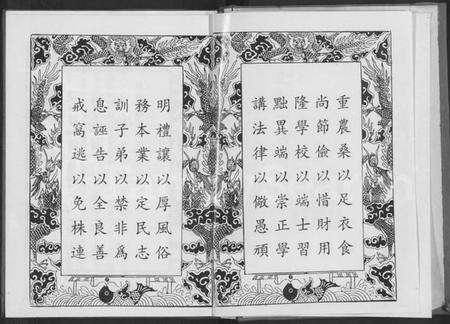 重農桑以足衣食
尚節儉以惜財用
隆學校以端士習
黜異端以崇正學
講法律以儆愚頑
明禮讓以厚風俗
務本業以定民志
訓子弟以禁非為
息誣告以全良善
戒窩逃以免株連